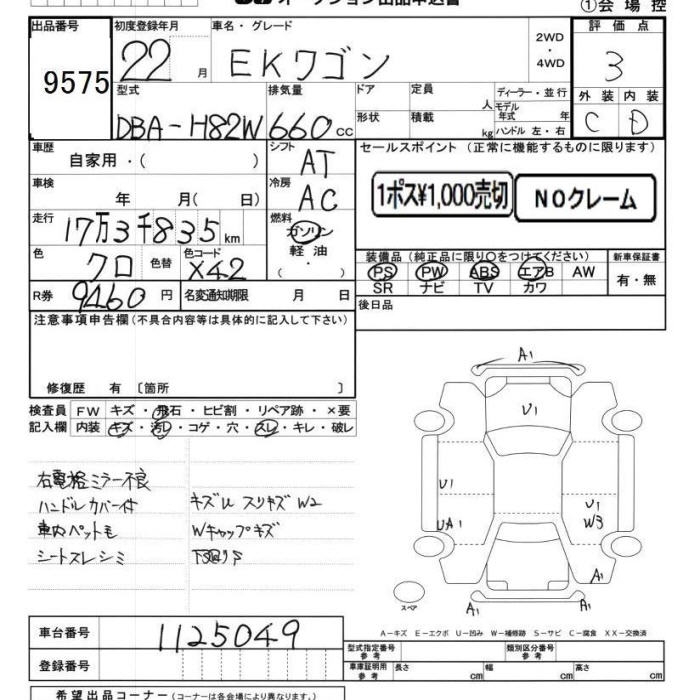 オークション出品申込書
①会場控
出品番号 初度登録年月 車名・グレード 評価点
9575 22 月 EKワゴン 2WD・4WD 3
型式 排気量 ドア 定員 人 ディーラー・並行 外装 内装
DBA-H82W 660cc 形状 積載 kg モデル年式 年 C D
ハンドル 左・右
車歴 シフト セールスポイント(正常に機能するものに限ります)
自家用・( ) AT
車検 冷房 1ポス¥1,000売切 NOクレーム
年 月( 日) AC
走行 燃料
17万3千835km ガソリン・軽油・( )
色 色替 色コード 装備品(純正品に限り○をつけてください) 新車保証書
クロ X42 PS PW ABS エアB AW 有・無
SR ナビ TV カワ
R券 9460円 名変通知期限 月 日
後日品
注意事項申告欄(不具合内容等は具体的に記入して下さい)
修復歴 有 〔箇所 〕
検査員 FW キズ・飛石・ヒビ割・リペア跡・×要
記入欄 内装 キズ・汚レ・コゲ・穴・スレ・キレ・破レ
右電格ミラー不良
ハンドルカバー付 キズU スリキズW2
車内ペット毛 Wキャップキズ
シートスレシミ
A1
U1
U1
UA1
U1
W3
A1
A1
A1
スペア
A-キズ E-エクボ U-凹み W-補修跡 S-サビ C-腐食 XX-交換済
車台番号 1125049
登録番号
型式指定番号 参考 類別区分番号 参考
車庫証明用 参考 長さ cm 幅 cm 高さ cm
希望出品コーナー(コーナーは各会場により異なります。)